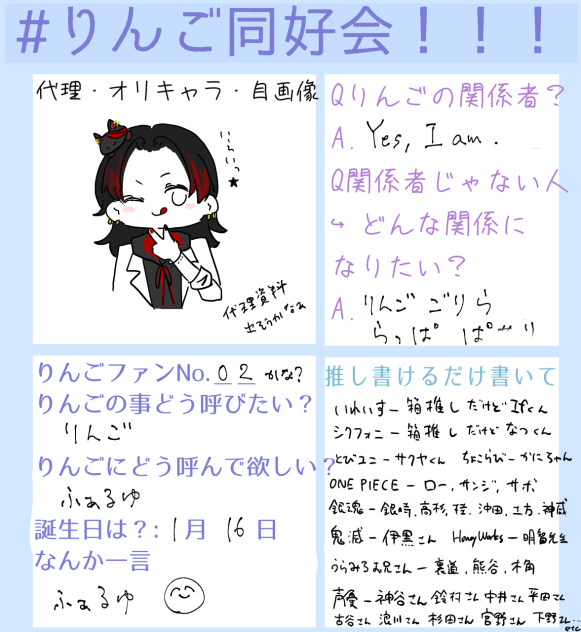 #りんご同好会!!!
代理・オリキャラ・自画像
いぇいっ★
代理資料
出そうかなぁ
Qりんごの関係者?
A. Yes, I am.
Q関係者じゃない人
↪ どんな関係に
なりたい?
A. りんご ごりら
らっぱ ぱせり
りんごファンNo. 02 かな?
りんごの事どう呼びたい?
りんご
りんごにどう呼んで欲しい?
ふぁるゆ
誕生日は?: 1月 16日
なんか一言
ふぁるゆ
推し書けるだけ書いて
いれいす—箱推しだけど Ifくん
シクフォニ—箱推しだけど なつくん
とぴユニ—サクヤくん ちょこらび—かにちゃん
ONE PIECE—ロー、サンジ、サボ
銀魂—銀時、高杉、桂、沖田、土方、神威
鬼滅—伊黒さん HoneyWorks—明智先生
うらみちお兄さん—裏道、熊谷、木角
声優—神谷さん 鈴村さん 中井さん 平田さん
古谷さん 浪川さん 杉田さん 宮野さん 下野さん…
etc